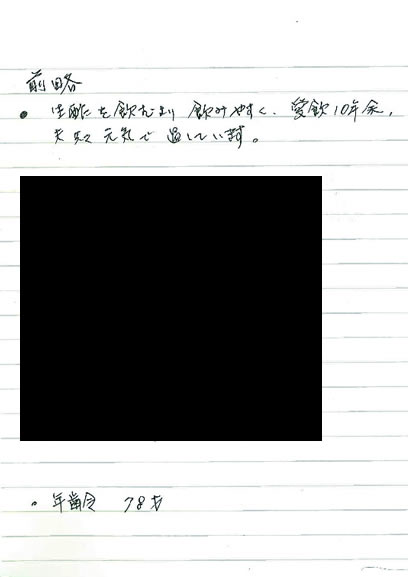 前略
• 生酢を飲むより飲みやすく、愛飲10年余、
夫婦共元気で過しています。
• 年齢 78才